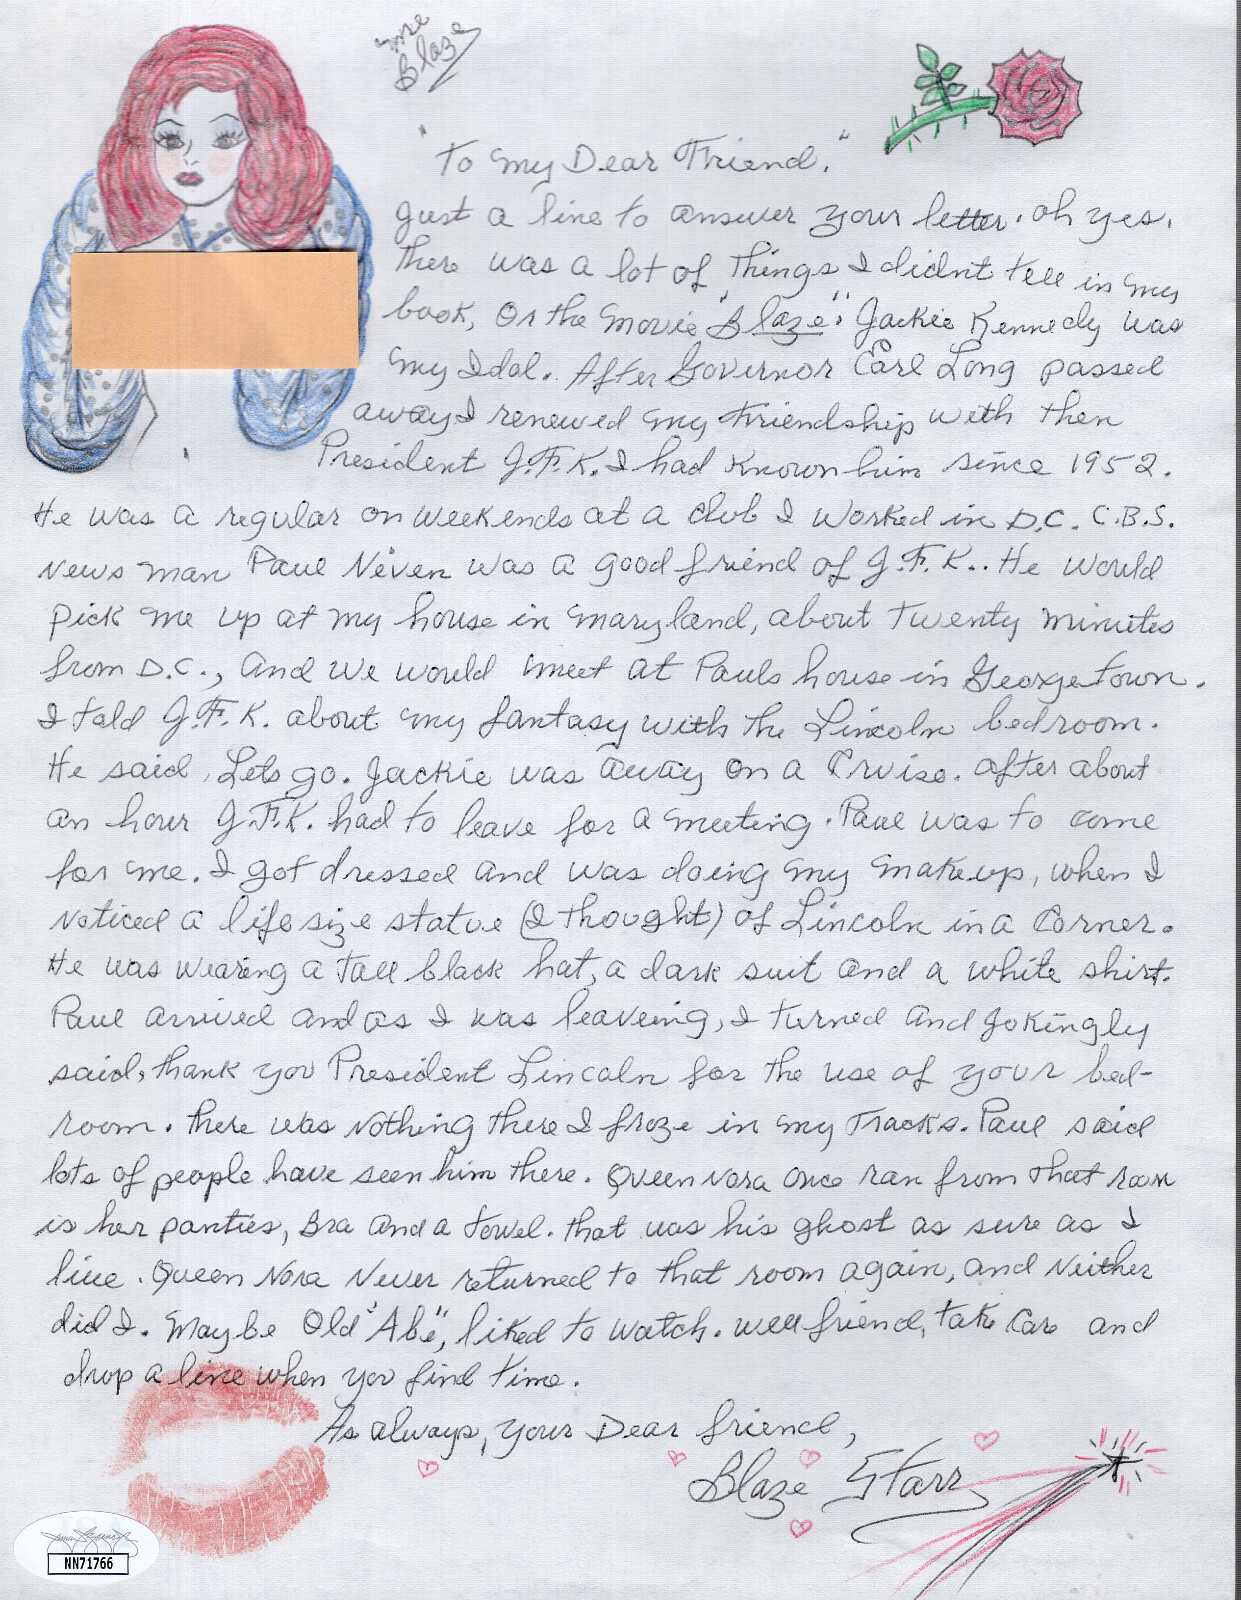 "me
Blaze
"To my Dear Friend."
Just a line to answer your letter. oh yes,
there was a lot of things I didn't tell in my
book, or the movie "Blaze". Jackie Kennedy was
my Idol. After Governor Earl Long passed
away I renewed my friendship with then
President J.F.K. I had known him since 1952.
He was a regular on weekends at a club I worked in D.C. C.B.S.
News man Paul Niven was a good friend of J.F.K.. He would
pick me up at my house in Maryland, about twenty minutes
from D.C., and we would meet at Pauls house in Georgetown.
I told J.F.K. about my fantasy with the Lincoln bedroom.
He said, Lets go. Jackie was away on a Cruise. after about
an hour J.F.K. had to leave for a meeting. Paul was to come
for me. I got dressed and was doing my makeup, when I
noticed a life size statue (I thought) of Lincoln in a Corner.
He was wearing a tall black hat, a dark suit and a white shirt.
Paul arrived and as I was leaveing, I turned and Jokingly
said, thank you President Lincoln for the use of your bed-
room. there was nothing there I froze in my tracks. Paul said
lots of people have seen him there. Queen Nora once ran from that room
is her panties, Bra and a towel. that was his ghost as sure as I
live. Queen Nora never returned to that room again, and neither
did I. Maybe Old "Abe", liked to watch. well friend, take Care and
drop a line when you find time.
As always, your Dear friend,
Blaze Starr
NN71766